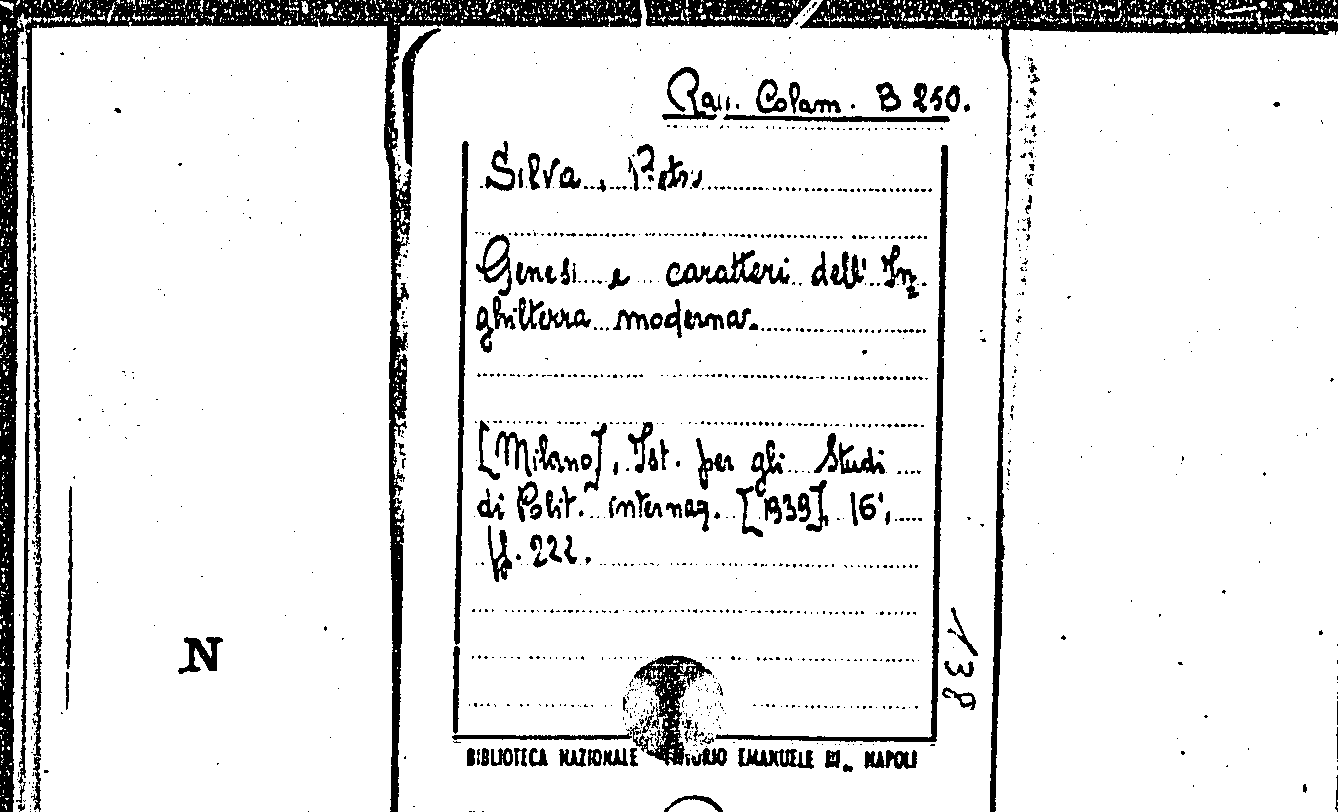 Rac. Colam. B 250.
Silva, Pietro
Genesi e caratteri dell'In
ghilterra moderna.
[Milano], Ist. per gli Studi
di Polit. internaz. [1939], 16°,
pp. 222.
138
N
BIBLIOTECA NAZIONALE VITTORIO EMANUELE III - NAPOLI